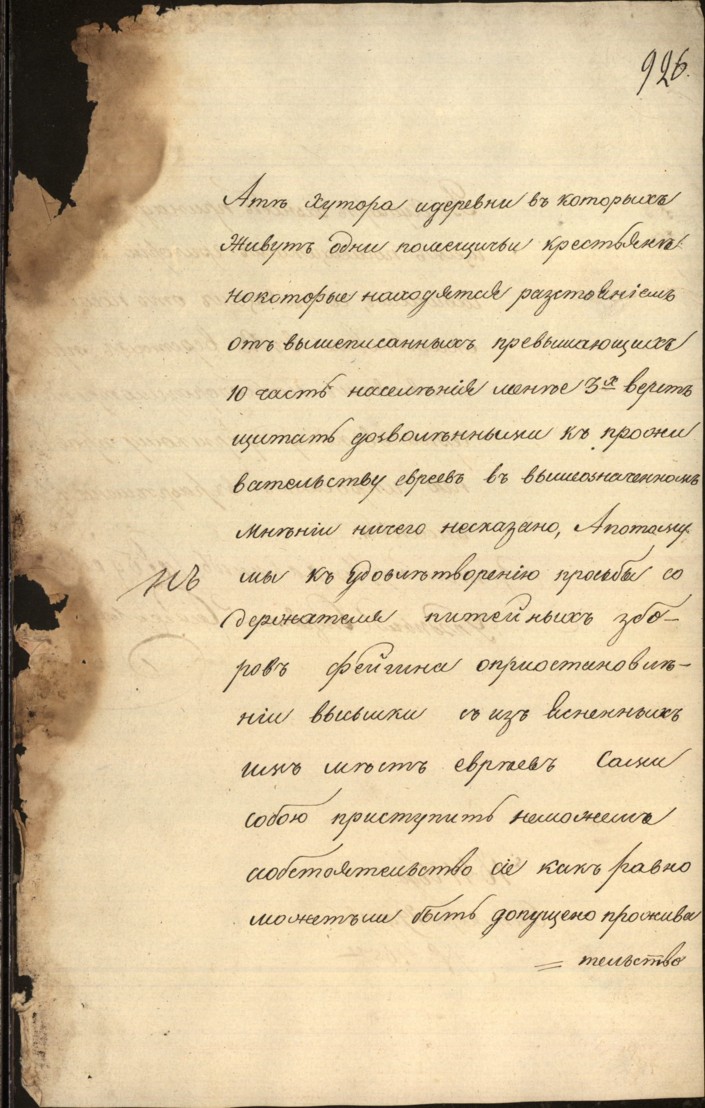 926.
Атъ хутора идеревни въ которыхъ
живутъ одни помещичьи крестьяне
нокоторые находятся разстояніемъ
отъ вышеписанныхъ превышающихъ
10 часть населѣнія менѣе 3х верстъ
щитать дозволѣнными къ прожи
вательству евреевъ въ вышеозначенномъ
мнѣніи ничего несказано, Апотому
мы къ удовлѣтворенію просьбы со
держателя питейныхъ збо-
ровъ Фейгина оприостановлѣ-
ніи высылки съ изъ ясненныхъ
имъ мѣстъ еврѣевъ Сами
собою приступить неможемъ
иобстоятельство сіе какъ равно
можетъли быть допущено прожива
= тельство